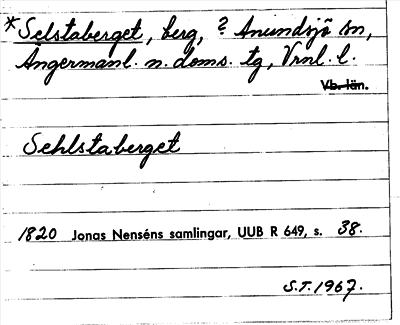 *Selstaberget, berg, ? Anundsjö sn,
Ångermanl. n. doms. tg, Vrnl. l.
Vb. län.
Sehlstaberget
1820 Jonas Nenséns samlingar, UUB R 649, s. 38.
S.T. 1967.